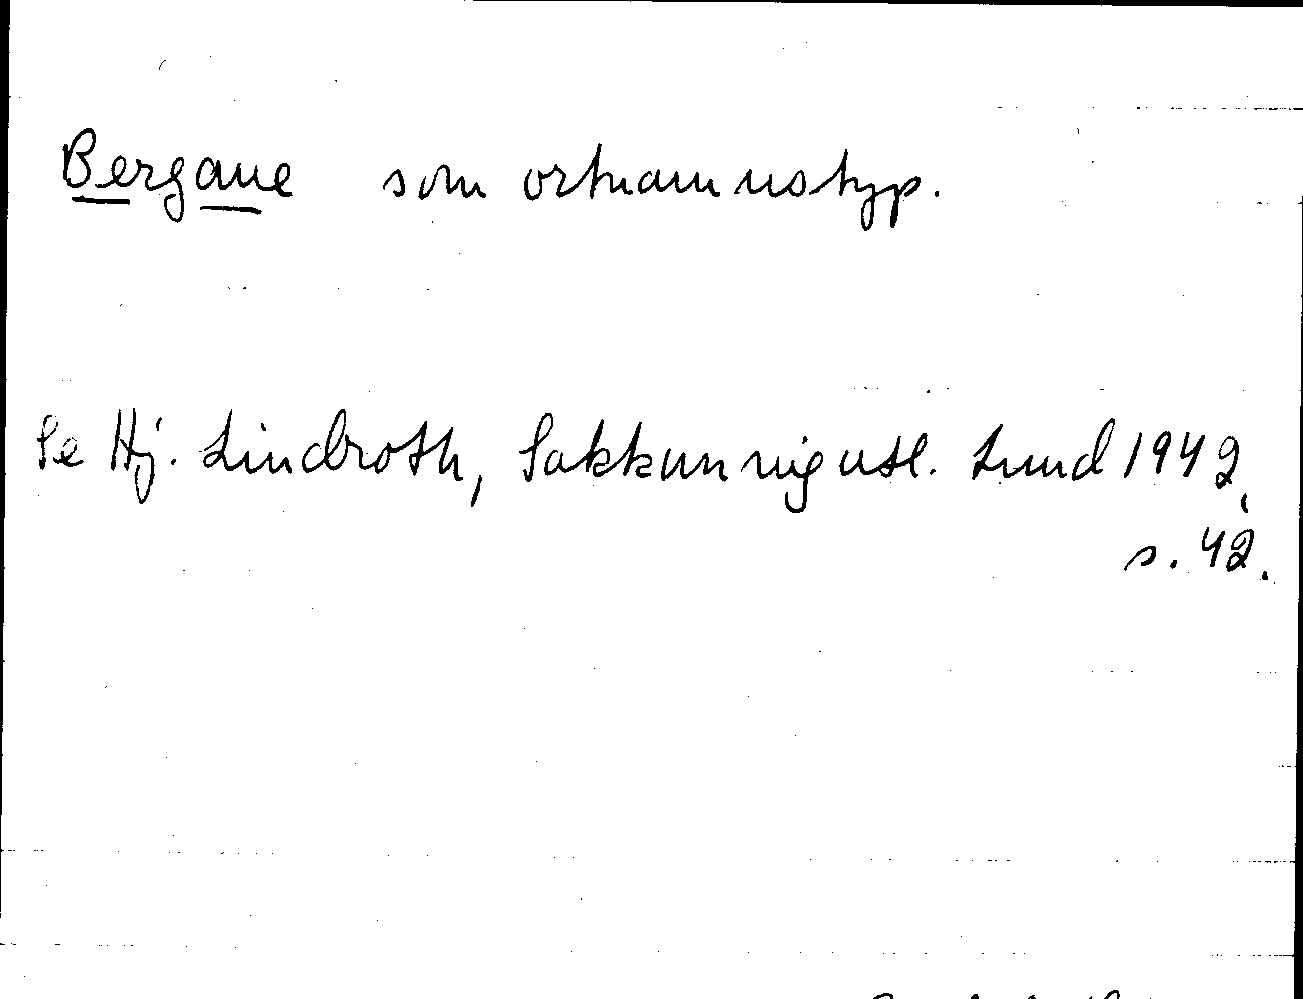 Bergane som ortnamnstyp.
Se Hj. Lindroth, Sakkunnigutl. Lund 1942,
s. 42.